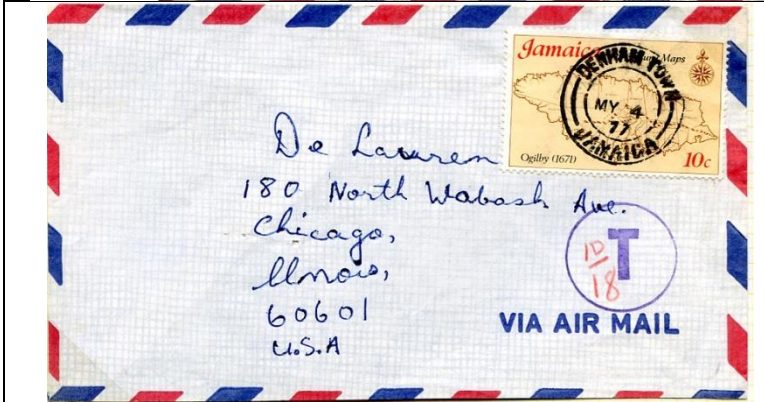 Jamaica
Maps
DENHAM TOWN
MY 4
77
JAMAICA
Ogilby (1671)
10c
De Lauren
180 North Wabash Ave.
Chicago,
Illnois,
60601
U.S.A
T
10/18
VIA AIR MAIL